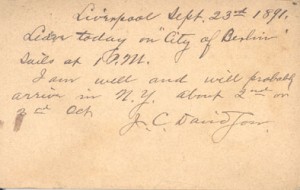 Liverpool Sept. 23rd 1891.
today on "City of Berlin"
Sails at 1 P.M.
I am well and will probably
arrive in N.Y. about 2nd or
3rd Oct
J. C. Davidson.